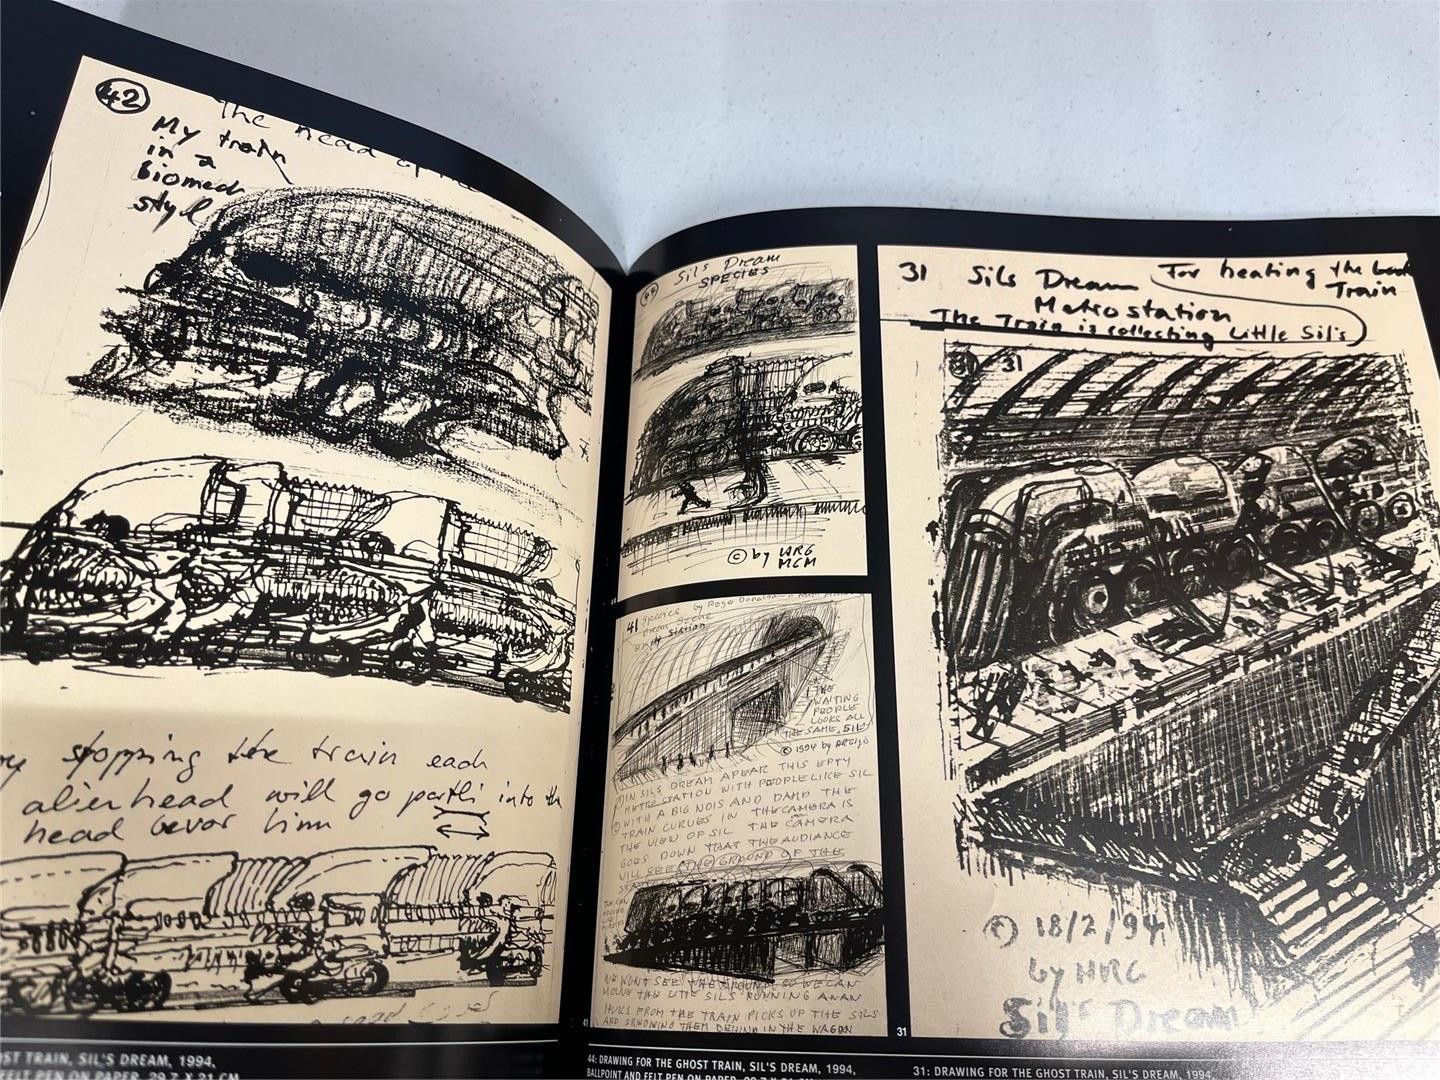 42
The head of
My train
in a
Biomech
styl
stopping the train each
alienhead will go partli into the
head bevor him
Sil's Dream
SPECIES
© by HRG
MCM
41 Species by Roger Donaldson
Dream
Station
THE
WAITING
PEOPLE
LOOKS ALL
THE SAME, SIL
© 1994 by HRGiger
IN SILS DREAM APEAR THIS EPTY
METROSTATION WITH PEOPLE LIKE SIL
WITH A BIG NOIS AND DAMP THE
TRAIN CURVES IN THE CAMERA IS
THE VIEW OF SIL THE CAMERA
GOES DOWN THAT THE AUDIANCE
WILL SEE THE GROUND OF THE
WE WONT SEE THE GROUND SO WE CAN
MOUVE THE LITTE SILS RUNNING AWAY
HUKS FROM THE TRAIN PICKS UP THE SILS
AND SRHOWING THEM BEHIND IN THE WAGON
31 Sils Dream For heating the
Train
Metrostation
The Train is collecting Little Sil's
31
© 18/2/94
by HRG
Sil's Dream
41
31
ST TRAIN, SIL'S DREAM, 1994,
FELT PEN ON PAPER, 29.7 X 21 CM
44: DRAWING FOR THE GHOST TRAIN, SIL'S DREAM, 1994,
BALLPOINT AND FELT PEN ON PAPER, 29.7 X 21 CM
31: DRAWING FOR THE GHOST TRAIN, SIL'S DREAM, 1994,